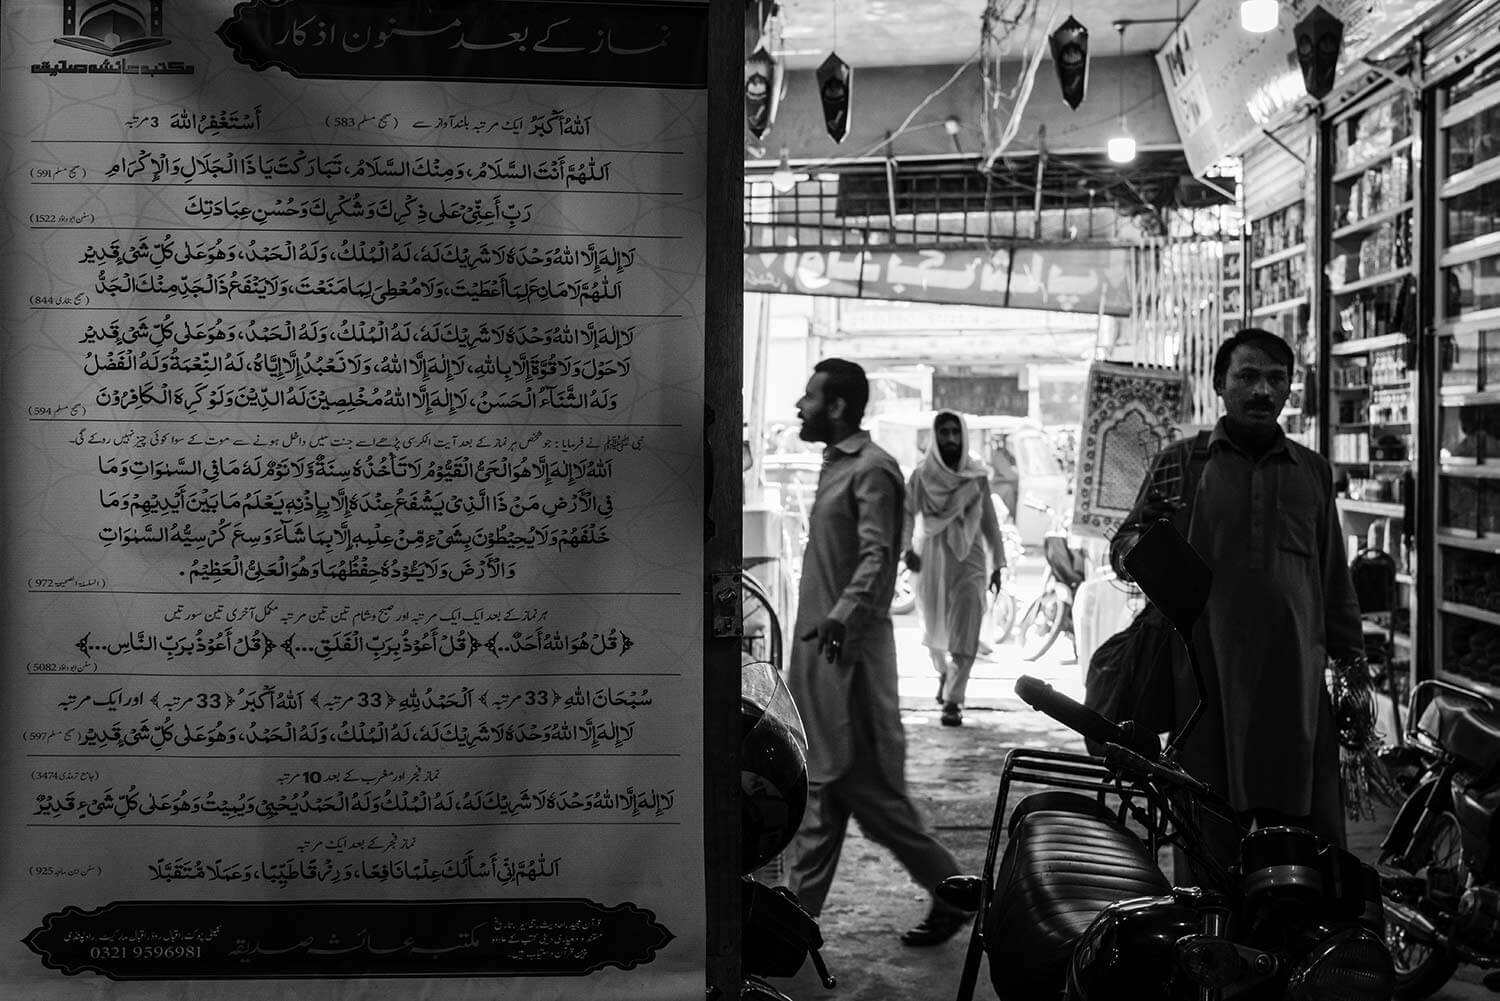 نماز کے بعد مسنون اذکار
مکتبہ عائشہ صدیقہ
اَللّٰهُ اَکْبَرُ ایک مرتبہ بلند آواز سے (صحیح مسلم 583) أَسْتَغْفِرُ اللّٰهَ 3 مرتبہ
اَللّٰهُمَّ أَنْتَ السَّلَامُ، وَمِنْكَ السَّلَامُ، تَبَارَكْتَ يَا ذَا الْجَلَالِ وَالْإِكْرَامِ (صحیح مسلم 591)
رَبِّ أَعِنِّيْ عَلٰى ذِكْرِكَ وَشُكْرِكَ وَحُسْنِ عِبَادَتِكَ (سنن ابو داؤد 1522)
لَا إِلٰهَ إِلَّا اللّٰهُ وَحْدَهٗ لَا شَرِيْكَ لَهٗ، لَهُ الْمُلْكُ، وَلَهُ الْحَمْدُ، وَهُوَ عَلٰى كُلِّ شَيْءٍ قَدِيْرٌ
اَللّٰهُمَّ لَا مَانِعَ لِمَا أَعْطَيْتَ، وَلَا مُعْطِيَ لِمَا مَنَعْتَ، وَلَا يَنْفَعُ ذَا الْجَدِّ مِنْكَ الْجَدُّ (صحیح بخاری 844)
لَا إِلٰهَ إِلَّا اللّٰهُ وَحْدَهٗ لَا شَرِيْكَ لَهٗ، لَهُ الْمُلْكُ، وَلَهُ الْحَمْدُ، وَهُوَ عَلٰى كُلِّ شَيْءٍ قَدِيْرٌ
لَا حَوْلَ وَلَا قُوَّةَ إِلَّا بِاللّٰهِ، لَا إِلٰهَ إِلَّا اللّٰهُ، وَلَا نَعْبُدُ إِلَّا إِيَّاهُ، لَهُ النِّعْمَةُ وَلَهُ الْفَضْلُ
وَلَهُ الثَّنَاءُ الْحَسَنُ، لَا إِلٰهَ إِلَّا اللّٰهُ مُخْلِصِيْنَ لَهُ الدِّيْنَ وَلَوْ كَرِهَ الْكَافِرُوْنَ (صحیح مسلم 594)
نبی ﷺ نے فرمایا: جو شخص ہر نماز کے بعد آیت الکرسی پڑھے اسے جنت میں داخل ہونے سے موت کے سوا کوئی چیز نہیں روکے گی۔
اَللّٰهُ لَا إِلٰهَ إِلَّا هُوَ الْحَيُّ الْقَيُّوْمُ لَا تَأْخُذُهٗ سِنَةٌ وَّلَا نَوْمٌ لَهٗ مَا فِي السَّمٰوَاتِ وَمَا
فِي الْأَرْضِ مَنْ ذَا الَّذِيْ يَشْفَعُ عِنْدَهٗ إِلَّا بِإِذْنِهٖ يَعْلَمُ مَا بَيْنَ أَيْدِيْهِمْ وَمَا
خَلْفَهُمْ وَلَا يُحِيْطُوْنَ بِشَيْءٍ مِّنْ عِلْمِهٖ إِلَّا بِمَا شَآءَ وَسِعَ كُرْسِيُّهُ السَّمٰوَاتِ
وَالْأَرْضَ وَلَا يَـُٔوْدُهٗ حِفْظُهُمَا وَهُوَ الْعَلِيُّ الْعَظِيْمُ . (السلسلة الصحيحة 972)
ہر نماز کے بعد ایک ایک مرتبہ اور صبح و شام تین تین مرتبہ مکمل آخری تین سورتیں
﴿قُلْ هُوَ اللّٰهُ أَحَدٌ...﴾ ﴿قُلْ أَعُوْذُ بِرَبِّ الْفَلَقِ...﴾ ﴿قُلْ أَعُوْذُ بِرَبِّ النَّاسِ...﴾ (سنن ابو داؤد 5082)
سُبْحَانَ اللّٰهِ ﴿33 مرتبہ﴾ اَلْحَمْدُ لِلّٰهِ ﴿33 مرتبہ﴾ اَللّٰهُ اَكْبَرُ ﴿33 مرتبہ﴾ اور ایک مرتبہ
لَا إِلٰهَ إِلَّا اللّٰهُ وَحْدَهٗ لَا شَرِيْكَ لَهٗ، لَهُ الْمُلْكُ، وَلَهُ الْحَمْدُ، وَهُوَ عَلٰى كُلِّ شَيْءٍ قَدِيْرٌ (صحیح مسلم 597)
نماز فجر اور مغرب کے بعد 10 مرتبہ (جامع ترمذی 3474)
لَا إِلٰهَ إِلَّا اللّٰهُ وَحْدَهٗ لَا شَرِيْكَ لَهٗ، لَهُ الْمُلْكُ وَلَهُ الْحَمْدُ يُحْيِيْ وَيُمِيْتُ وَهُوَ عَلٰى كُلِّ شَيْءٍ قَدِيْرٌ
نماز فجر کے بعد ایک مرتبہ
اَللّٰهُمَّ إِنِّيْ أَسْأَلُكَ عِلْمًا نَافِعًا، وَرِزْقًا طَيِّبًا، وَعَمَلًا مُتَقَبَّلًا (سنن ابن ماجہ 925)
مکتبہ عائشہ صدیقہ
کمیٹی چوک، اقبال روڈ، اقبال مارکیٹ، راولپنڈی
0321 9596981